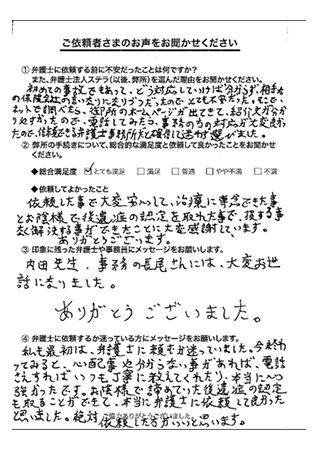 ご依頼者さまのお声をお聞かせください
① 弁護士に依頼する前に不安だったことは何ですか?
また、弁護士法人ステラ(以後、弊所)を選んだ理由をお聞かせください。
初めての事故でもあって、どう対応していけば分からず、相手方
の保険会社の言いなりに走りづらったので とても不安だった。そこで、
ネットで調べたら、御所のホームページが出てきて、紹介文が分か
りやすたので、電話してみたら、事務の方の対応が大変良かっ
たので、信頼できる弁護士事務所だと確信して迷わず選びました。
② 弊所の手続きについて、総合的な満足度と依頼して良かったことをお聞かせ
ください。
◆総合満足度 ☑とても満足 □満足 □普通 □やや不満 □不満
◆依頼してよかったこと
依頼した事で大変安心して、治療に専念できた事
とお陰様で後遺症の認定を取れた事で、損する事
なく解決する事ができたことに大変感謝しています。
ありがとうございます。
③ 印象に残った弁護士や事務員にメッセージをお願いします。
内田先生、事務の長尾さんには、大変お世
話になりました。
ありがとうございました。
④ 弁護士に依頼するか迷っている方にメッセージをお願いします。
私も最初は、弁護士に頼むか迷っていました。今終わ
ってみると、心配事や分からない事があれば、電話
さえすればいつも丁寧に教えてくれたり、本当に心
強かったです。お陰様で諦めていた後遺症の認定
も取ることができて、本当に弁護士に依頼して良かったと
思いました。絶対 依頼した方がいいと思います。
ご協力ありがとうございました。